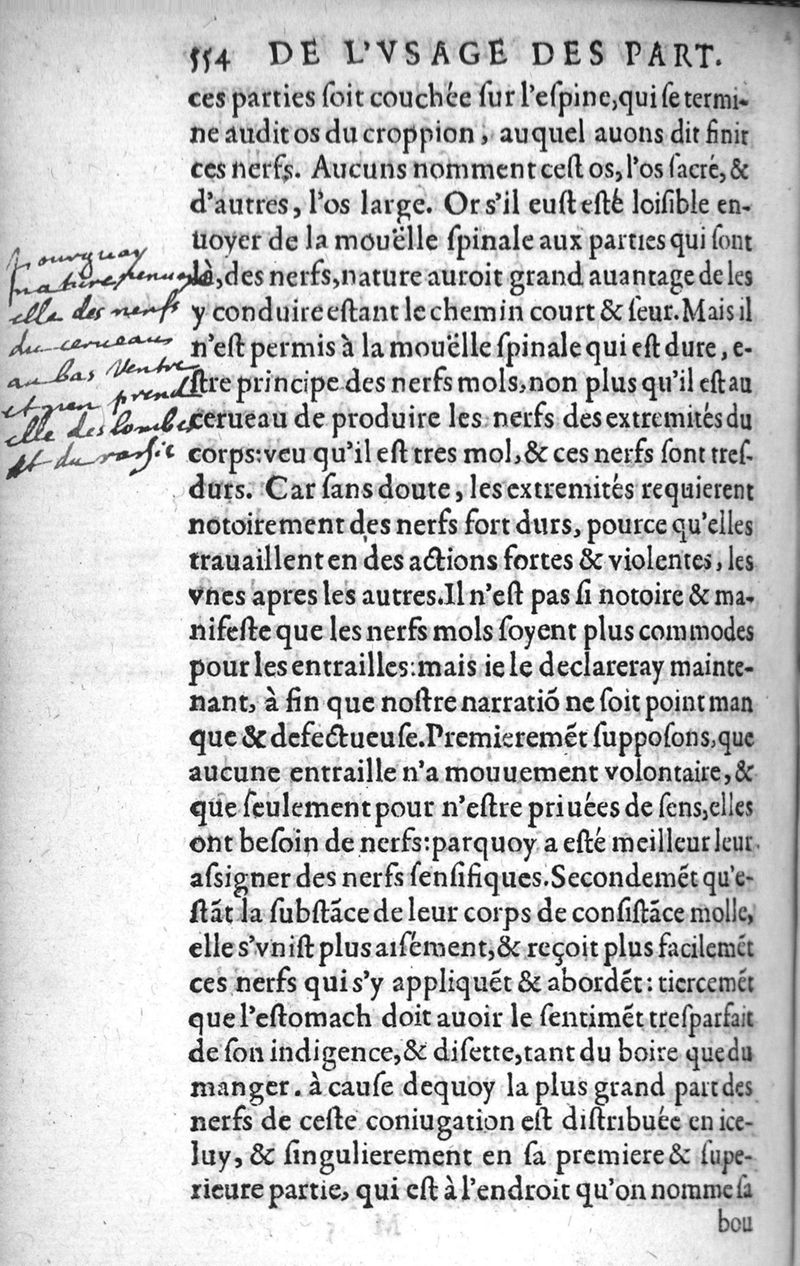 554 DE L'VSAGE DES PART.
ces parties ſoit couchée ſur l'eſpine,qui ſe termi-
ne audit os du croppion, auquel auons dit finir
ces nerfs. Aucuns nomment ceſt os,l'os ſacré,&
d'autres, l'os large. Or s'il euſt eſté loiſible en-
uoyer de la mouëlle ſpinale aux parties qui ſont
là,des nerfs,nature auroit grand auantage de les
y conduire eſtant le chemin court & ſeur.Mais il
n'eſt permis à la mouëlle ſpinale qui eſt dure, e-
ſtre principe des nerfs mols,non plus qu'il eſt au
cerueau de produire les nerfs des extremités du
corps:veu qu'il eſt tres mol,& ces nerfs ſont treſ-
durs. Car ſans doute, les extremités requierent
notoirement des nerfs fort durs, pource qu'elles
trauaillent en des actions fortes & violentes, les
vnes apres les autres.Il n'eſt pas ſi notoire & ma-
nifeſte que les nerfs mols ſoyent plus commodes
pour les entrailles:mais ie le declareray mainte-
nant, à fin que noſtre narratiõ ne ſoit point man
que & defectueuſe.Premieremẽt ſuppoſons,que
aucune entraille n'a mouuement volontaire,&
que ſeulement pour n'eſtre priuées de ſens,elles
ont beſoin de nerfs:parquoy a eſté meilleur leur
aſsigner des nerfs ſenſifiques.Secondemẽt qu'e-
ſtãt la ſubſtãce de leur corps de conſiſtãce molle,
elle s'vniſt plus aiſément,& reçoit plus facilemẽt
ces nerfs qui s'y appliquẽt & abordẽt: tiercemẽt
que l'eſtomach doit auoir le ſentimẽt treſparfait
de ſon indigence,& diſette,tant du boire que du
manger. à cauſe dequoy la plus grand part des
nerfs de ceſte coniugation eſt diſtribuée en ice-
luy, & ſingulierement en ſa premiere & ſupe-
rieure partie, qui eſt à l'endroit qu'on nomme ſa
bou
pourquay
nature enuoy
elle des nerfs
du cerueau
au bas Ventre
et n'en prend
elle des lombes
et du